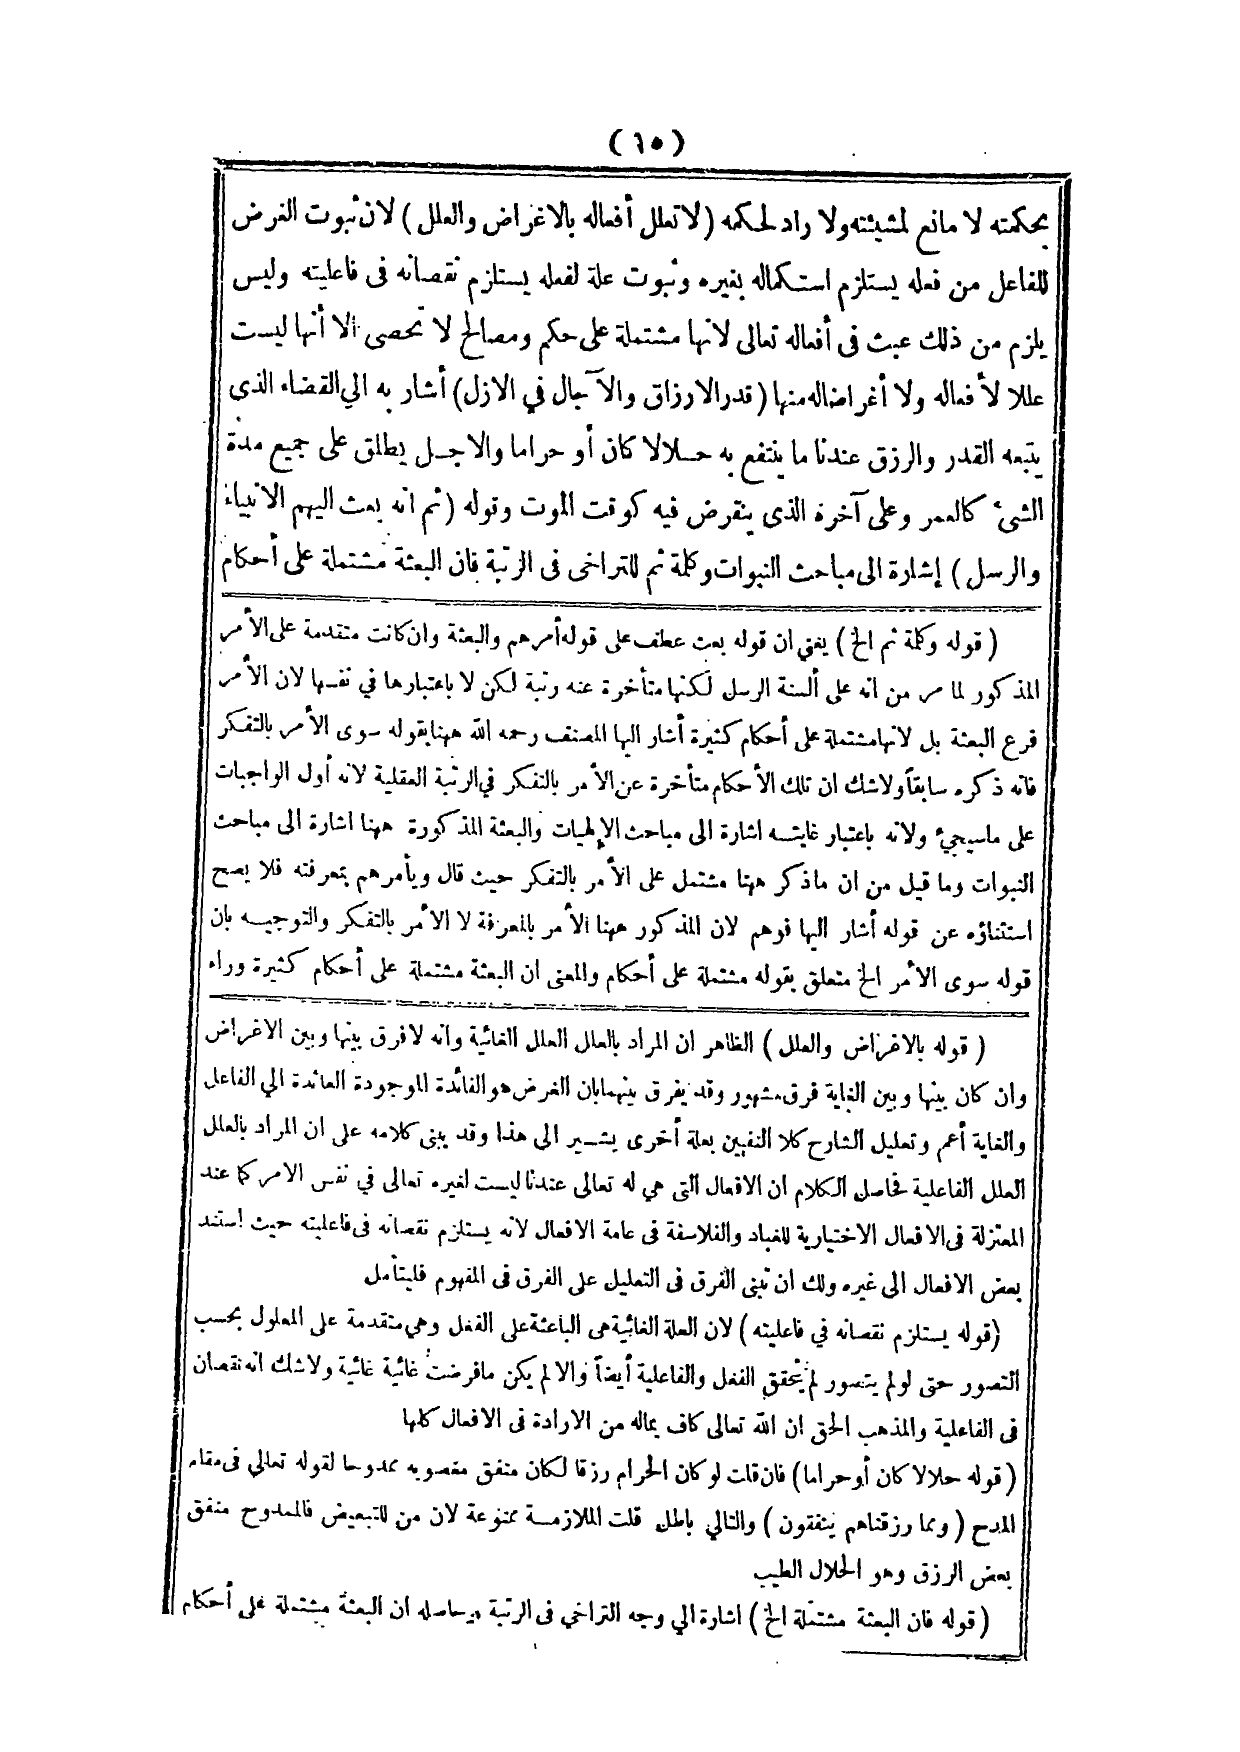 (١٥)
بحكمته لا مانع لمشيئته ولا راد لحكمه (لا تعلل أفعاله بالاغراض والعلل) لان ثبوت الغرض
للفاعل من فعله يستلزم استكماله بغيره وثبوت علة لفعله يستلزم نقصانه فى فاعليته وليس
يلزم من ذلك عبث فى أفعاله تعالى لانها مشتملة على حكم ومصالح لا تحصى الا أنها ليست
عللا لأفعاله ولا أغراضا له منها (قدر الارزاق والآجال في الازل) أشار به الي القضاء الذى
يتبعه القدر والرزق عندنا ما ينتفع به حلالا كان أو حراما والاجل يطلق على جميع مدة
الشئ كالعمر وعلى آخره الذى ينقرض فيه كوقت الموت وقوله (ثم انه بعث اليهم الانبياء
والرسل) إشارة الى مباحث النبوات وكلمة ثم للتراخى فى الرتبة فان البعثة مشتملة على أحكام
(قوله وكلمة ثم الخ) يعنى ان قوله بعث عطف على قوله أمرهم والبعثة وان كانت متقدمة على الأمر
المذكور لما مر من انه على ألسنة الرسل لكنها متأخرة عنه رتبة لكن لا باعتبارها في نفسها لان الأمر
فرع البعثة بل لانها مشتملة على أحكام كثيرة أشار اليها المصنف رحمه الله ههنا بقوله سوى الأمر بالتفكر
فانه ذكره سابقاً ولاشك ان تلك الأحكام متأخرة عن الأمر بالتفكر في الرتبة العقلية لانه أول الواجبات
على ماسيجئ ولانه باعتبار غايته اشارة الى مباحث الإلهيات والبعثة المذكورة ههنا اشارة الى مباحث
النبوات وما قيل من ان ماذكر ههنا مشتمل على الأمر بالتفكر حيث قال ويأمرهم بمعرفته فلا يصح
استثناؤه عن قوله أشار اليها فوهم لان المذكور ههنا الأمر بالمعرفة لا الأمر بالتفكر والتوجيه بان
قوله سوى الأمر الخ متعلق بقوله مشتملة على أحكام والمعنى ان البعثة مشتملة على أحكام كثيرة وراء
(قوله بالاغراض والعلل) الظاهر ان المراد بالعلل العلل الغائية وانه لا فرق بينها وبين الاغراض
وان كان بينها وبين الغاية فرق مشهور وقد يفرق بينهما بان الغرض هو الفائدة الموجودة العائدة الي الفاعل
والغاية أعم وتعليل الشارح كلا النفيين بعلة أخرى يشير الى هذا وقد يبنى كلامه على ان المراد بالعلل
العلل الفاعلية فحاصل الكلام ان الافعال التى هي له تعالى عندنا ليست لغيره تعالى في نفس الامر كما عند
المعتزلة فى الافعال الاختيارية للعباد والفلاسفة فى عامة الافعال لانه يستلزم نقصانه فى فاعليته حيث استند
بعض الافعال الى غيره ولك ان تبنى الفرق فى التعليل على الفرق فى المفهوم فليتأمل
(قوله يستلزم نقصانه في فاعليته) لان العلة الغائية هى الباعثة على الفعل وهى متقدمة على المعلول بحسب
التصور حتى لو لم يتصور لم يتحقق الفعل والفاعلية أيضاً والا لم يكن مافرضت غائية غائية ولاشك انه نقصان
فى الفاعلية والمذهب الحق ان الله تعالى كاف بماله من الارادة فى الافعال كلها
(قوله حلالا كان أو حراما) فان قلت لو كان الحرام رزقا لكان منفق مغصوبه ممدوحا لقوله تعالي فى مقام
المدح (ومما رزقناهم ينفقون) والتالي باطل قلت الملازمة ممنوعة لان من للتبعيض فالممدوح منفق
بعض الرزق وهو الحلال الطيب
(قوله فان البعثة مشتملة الخ) اشارة الي وجه التراخي فى الرتبة وحاصله ان البعثة مشتملة على أحكام